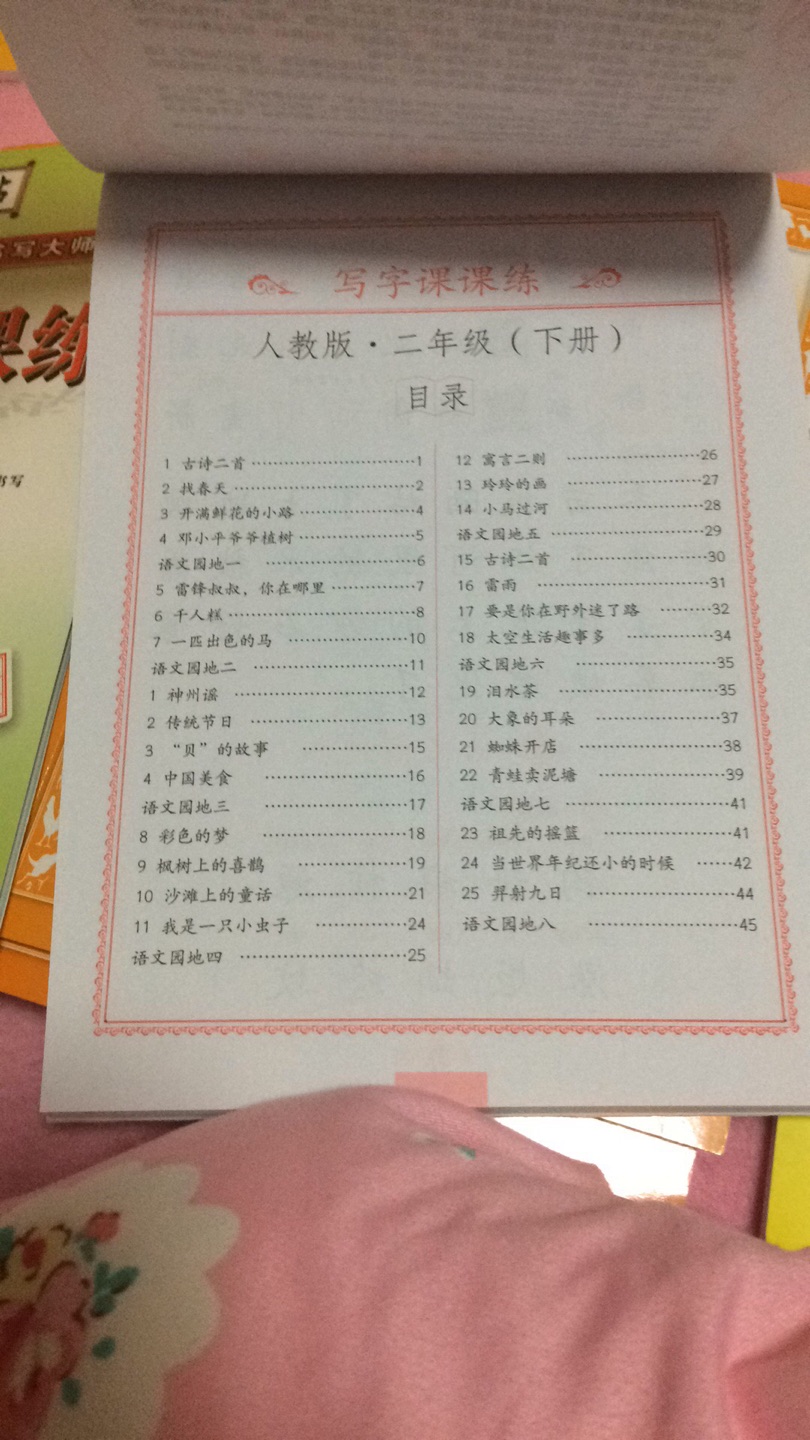 写字课课练
人教版·二年级（下册）
目录
1 古诗二首 …………………………1
2 找春天 ……………………………2
3 开满鲜花的小路 …………………4
4 邓小平爷爷植树 …………………5
语文园地一 …………………………6
5 雷锋叔叔，你在哪里 ……………7
6 千人糕 ……………………………8
7 一匹出色的马 ……………………10
语文园地二 …………………………11
1 神州谣 ……………………………12
2 传统节日 …………………………13
3 “贝”的故事 ………………………15
4 中国美食 …………………………16
语文园地三 …………………………17
8 彩色的梦 …………………………18
9 枫树上的喜鹊 ……………………19
10 沙滩上的童话 …………………21
11 我是一只小虫子 ………………24
语文园地四 …………………………25
12 寓言二则 ………………………26
13 玲玲的画 ………………………27
14 小马过河 ………………………28
语文园地五 …………………………29
15 古诗二首 ………………………30
16 雷雨 ……………………………31
17 要是你在野外迷了路 …………32
18 太空生活趣事多 ………………34
语文园地六 …………………………35
19 泪水茶 …………………………35
20 大象的耳朵 ……………………37
21 蜘蛛开店 ………………………38
22 青蛙卖泥塘 ……………………39
语文园地七 …………………………41
23 祖先的摇篮 ……………………41
24 当世界年纪还小的时候 ………42
25 羿射九日 ………………………44
语文园地八 …………………………45
写大师
课练
书写